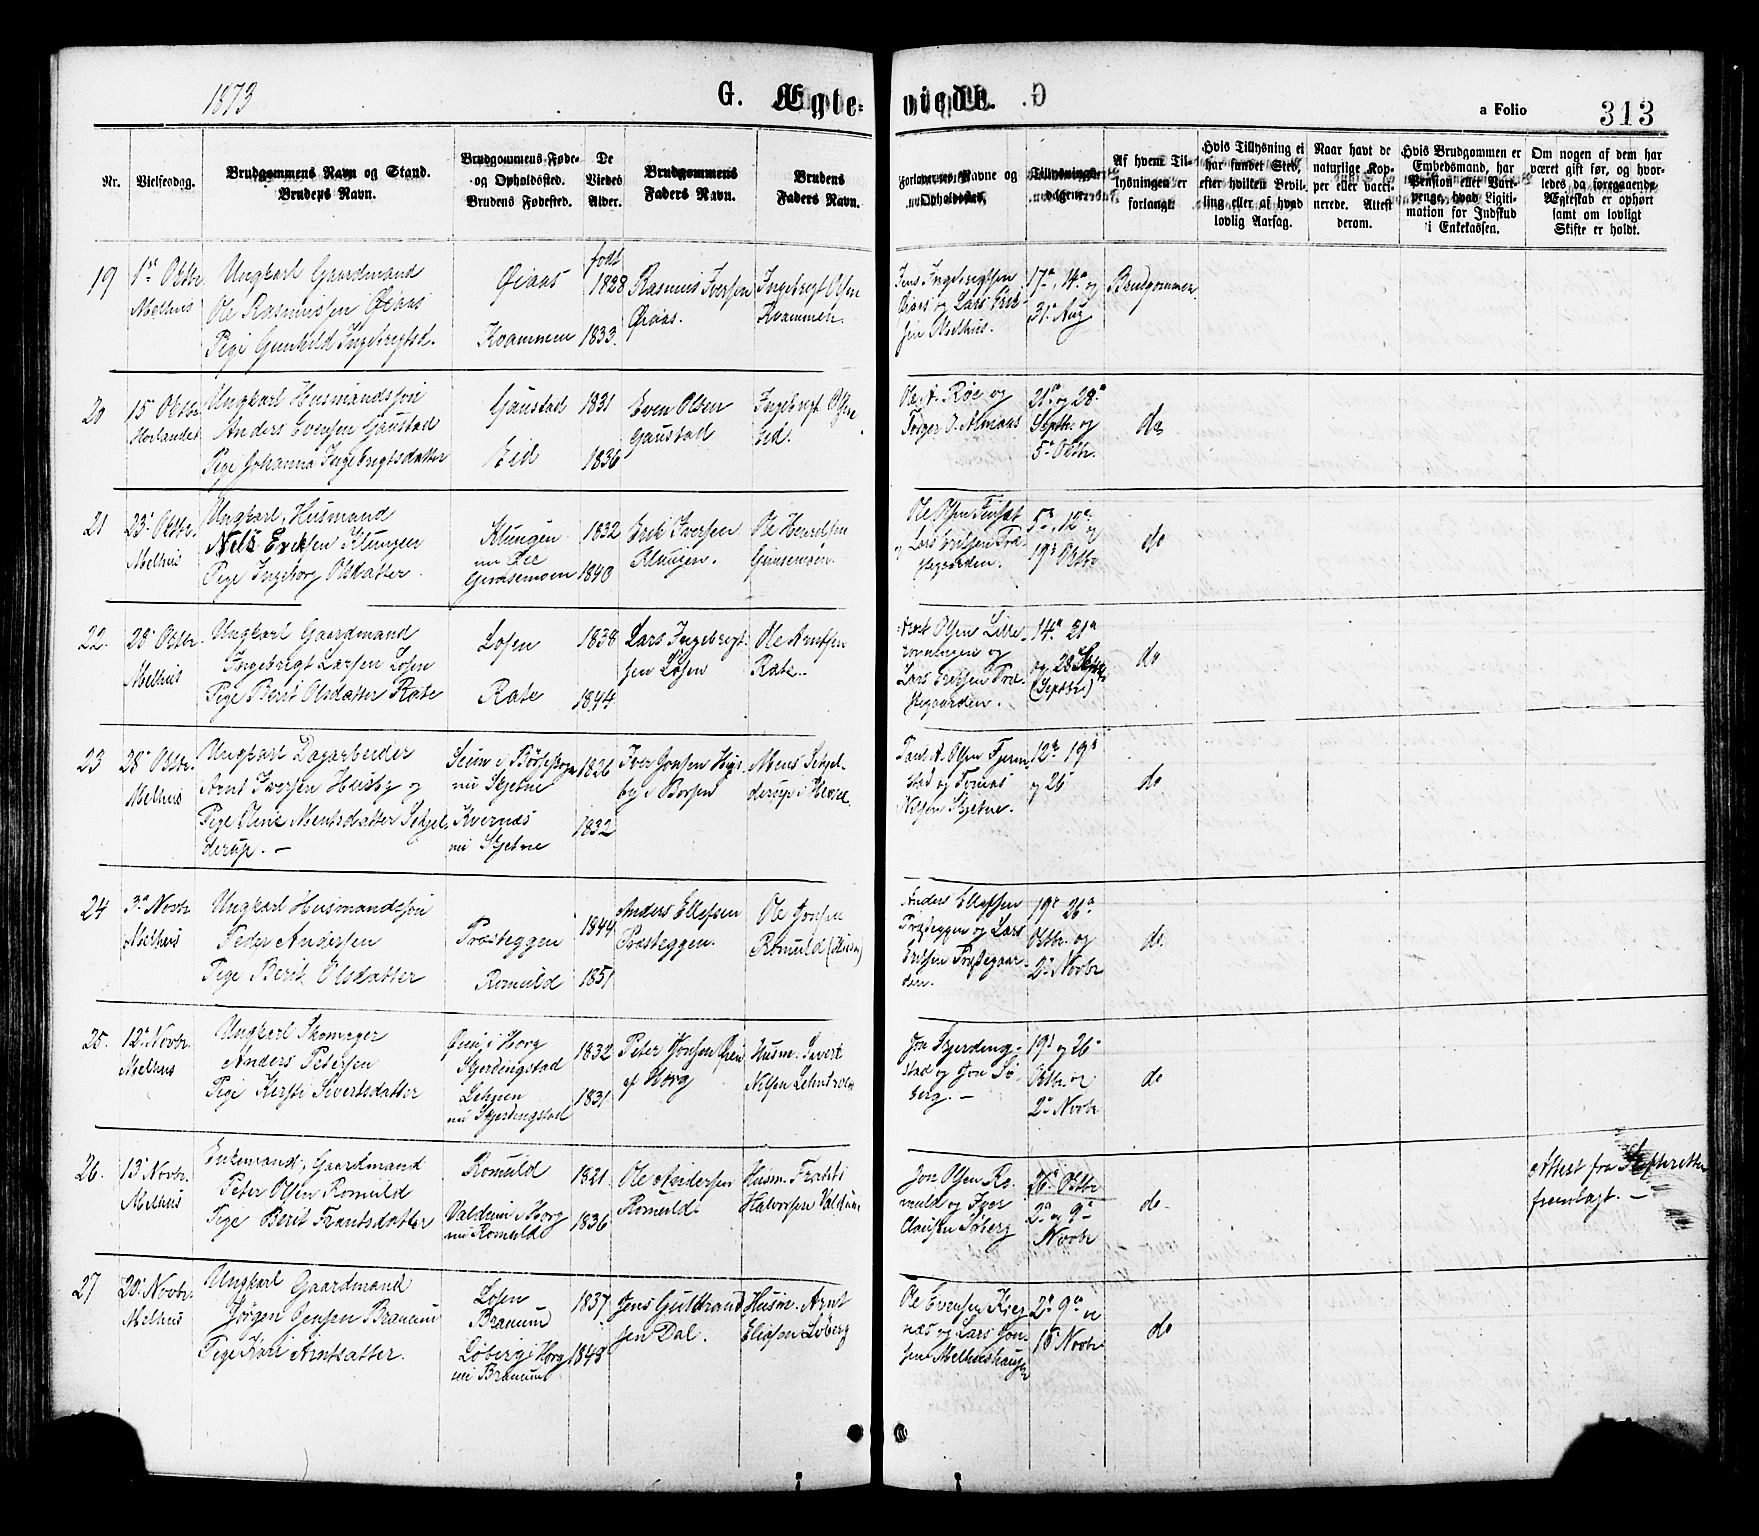 1873
G. Ægteviede.
a Folio 313
Nr.
Vielsesdag.
Brudgommens Navn og Stand.
Brudens Navn.
Brudgommens Føde- og Opholdssted.
Brudens Fødested.
De Viedes Alder.
Brudgommens Faders Navn.
Brudens Faders Navn.
Forlovernes Navne og Opholdssted.
Tillysningsdagene.
Af hvem Tillysningen er forlangt.
Hvis Tillysning ei har fundet Sted, efter hvilken Bevilling eller af hvad lovlig Aarsag.
Naar havt de naturlige Kopper eller vaccinerede. Attest derom.
Hvis Brudgommen er Embedsmand, har Pension eller Vartpenge, hvad Ligitimation for Indskud i Enkekassen.
Om nogen af dem har været gift før, og hvorledes da foregaaende Ægteskab er ophørt samt om lovligt Skifte er holdt.
19
1ste Octbr.
Melhus
Ungkarl Gaardmand
Ole Rasmussen Øiaas
Pige Gunhild Ingebrigtsd.
Øiaas
Kvammen
født
1828
1833.
Rasmus Iversen
Øiaas.
Ingebrigt Olsen
Kvammen.
Jens Ingebrigtsen
Øiaas og Lars Erik-
sen Melhus.
17de, 24de og
31te Aug
Brudgommen
20
15de Octbr
Horlandet
Ungkarl Husmandssøn
Anders Evensen Gaustad
Pige Johanna Ingebrigtsdatter
Gaustad
Eid
1831
1836
Even Olsen
Gaustad
Ingebrigt Olsen
Eid.
Ole A. Røe og
21de og 28de
Septbr. og
5te Octbr.
do
21
23de Octbr.
Melhus
Ungkarl, Husmand
Nils Eriksen Klungen
Pige Ingeborg Olsdatter.
Klungen
nu Lee
Gimsemoen
1832
1840
Erik Iversen
Klungen.
Ole Henriksen
Gimsemoen.
Ole Olsen
og Lars Eriksen Præ-
stegaarden.
5te, 12te og
19de Octbr
do
22.
28de Octbr.
Melhus
Ungkarl Gaardmand
Ingebrigt Larsen Losen
Pige Berit Olsdatter Rate
Losen
Rate
1838
1844
Lars Ingebrigt-
sen Losen
Ole Arntsen
Rate.
Olsen Lille-
og
Lars Eriksen Præ-
stegaarden.
14de 21de
og 28 Septbr
(Septbr)
do
23
28de Octbr.
Melhus
Ungkarl Dagarbeider
Arnt Iversen Husby og
Pige Oline Mentsdatter Schjel-
derup. —
i Børseskogn
nu Skjetne
Kvernæs
nu Skjetne
1826
1832
Iver Jonsen Hus-
by i Børsen
Ment Schjel-
derup i Hevne
Paul A. Olsen Fjerm-
stad og Tomas
Nilsen Skjetne.
12te 19de
og 26
do
24
3de Novbr
Melhus
Ungkarl Husmandssøn
Peder Andersen
Pige Berit Olsdatter
Præsteggen
Romuld
1844
1851
Anders Ellefsen
Præsteggen.
Ole Jonsen
Romuld (Husm)
Anders Ellefsen
Præsteggen og Lars
Eriksen Præstegaar-
den.
19de 26de
Octbr. og
2den Novbr
do
25.
12te Novbr.
Melhus
Ungkarl Skomager
Anders Petersen
Pige Kirsti Sivertsdatter
i Horg
Skjerdingstad
nu Skjerdingstad
1832
1831
Peter Jonsen
af Horg
Husm. Sivert
Nilsen
Jon Skjerding-
stad og Jon Sø-
berg. —
19de og 26de
Octbr og
2den Novbr
do
26.
13de Novbr.
Melhus
Enkemand, Gaardmand
Peter Olsen Romuld
Pige Berit Frantsdatter
Romuld
Valdum i Horg
nu Romuld
1821
1836
Ole Andersen
Romuld.
Husm. Frants
Halvorsen Valdum
Jon Olsen Ro-
muld og Iver
Clausen Søberg
26de Octbr
2den og 9de
Novbr
do.
Attest fra Skifteretten
fremlagt. —
27
20de Novbr.
Melhus
Ungkarl Gaardmand
Jørgen Jensen Braaum
Pige Kari Arntsdatter.
Losen
Braaum
Løberg i Horg
nu Braaum
1837
1848
Jens Guldbrand-
sen Dal.
Husm. Arnt
Eliasen Løberg
Ole Evensen Kreg-
næs og Lars Jon-
sen Melhushaugen
2den 9de og
16de Novbr
do